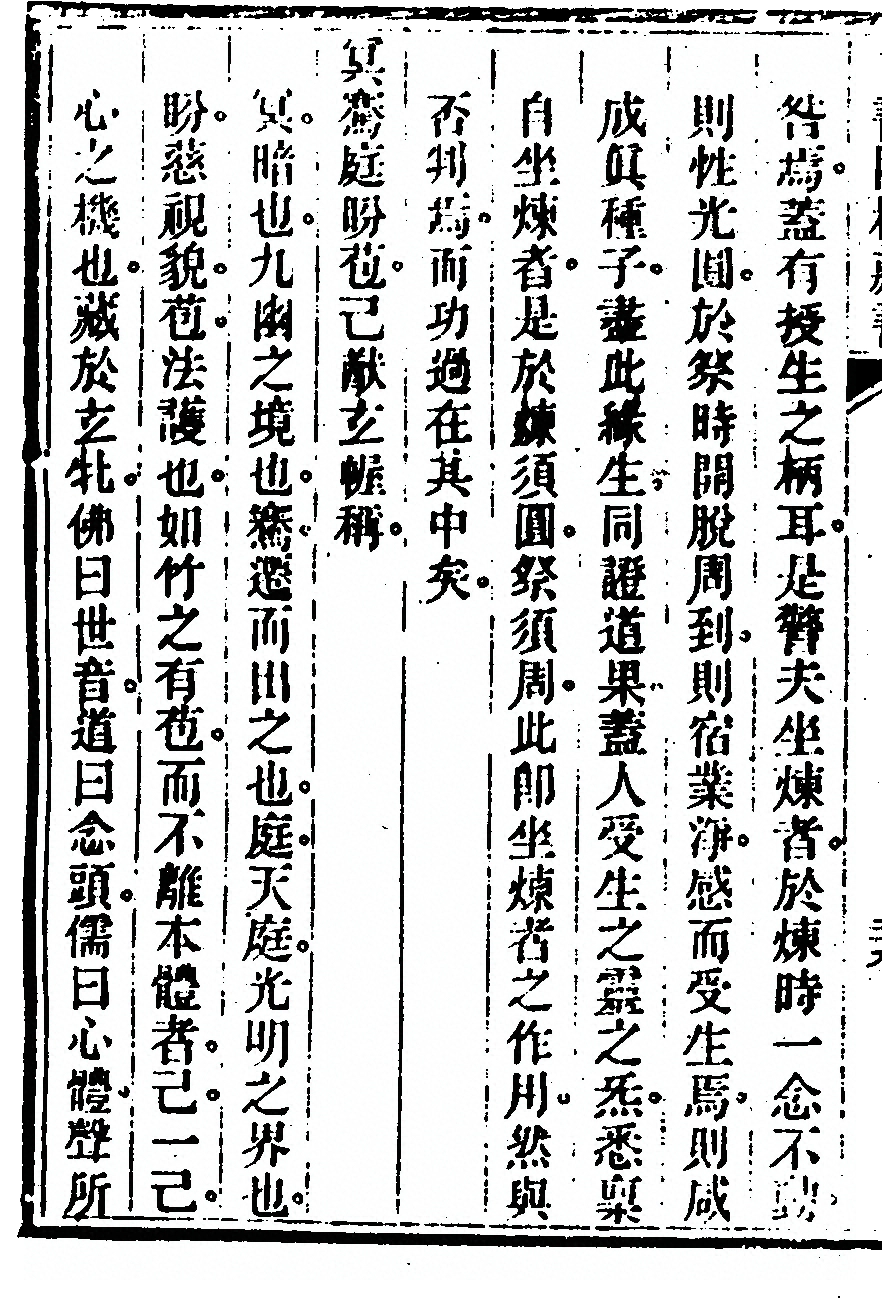 咎焉。蓋有授生之柄耳。是警夫坐煉者。於煉時一念不動。
則性光圓。於祭時開脫周到。則宿業淨。感而受生焉。則咸
成眞種子。盡此緣生。同證道果。蓋人受生之靈之炁。悉稟
自坐煉者。是於煉須圓。祭須周。此卽坐煉者之作用。然與
否判焉。而功過在其中矣。
冥騫庭盼苞。己猷玄幄稱。
冥。暗也。九幽之境也。騫。遷而出之也。庭。天庭。光明之界也。
盼。慈視貌。苞。法護也。如竹之有苞。而不離本體者。己。一己。
心之機也。藏於玄牝。佛曰世音。道曰念頭。儒曰心體。聲所